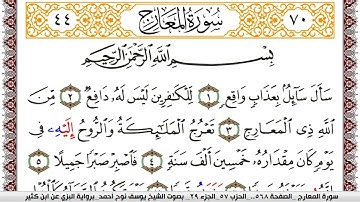 ٧٠ سُورَةُ المَعَارِجِ ٤٤
بِسْمِ اللَّهِ الرَّحْمَٰنِ الرَّحِيمِ
سَأَلَ سَآئِلُۢ بِعَذَابٖ وَاقِعٖ ١ لِّلْكَٰفِرِينَ لَيْسَ لَهُۥ دَافِعٞ ٢ مِّنَ
اللَّهِ ذِى الْمَعَارِجِ ٣ تَعْرُجُ الْمَلَٰٓئِكَةُ وَالرُّوحُ إِلَيْهِۦ فِى
يَوْمٖ كَانَ مِقْدَارُهُۥ خَمْسِينَ أَلْفَ سَنَةٖ ٤ فَاصْبِرْ صَبْرٗا جَمِيلًا ٥
سورة المعارج_الصفحة ٥٦٨_ الحزب ٥٧_الجزء ٢٩_ بصوت الشيخ يوسف نوح أحمد_برواية البزي عن ابن كثير